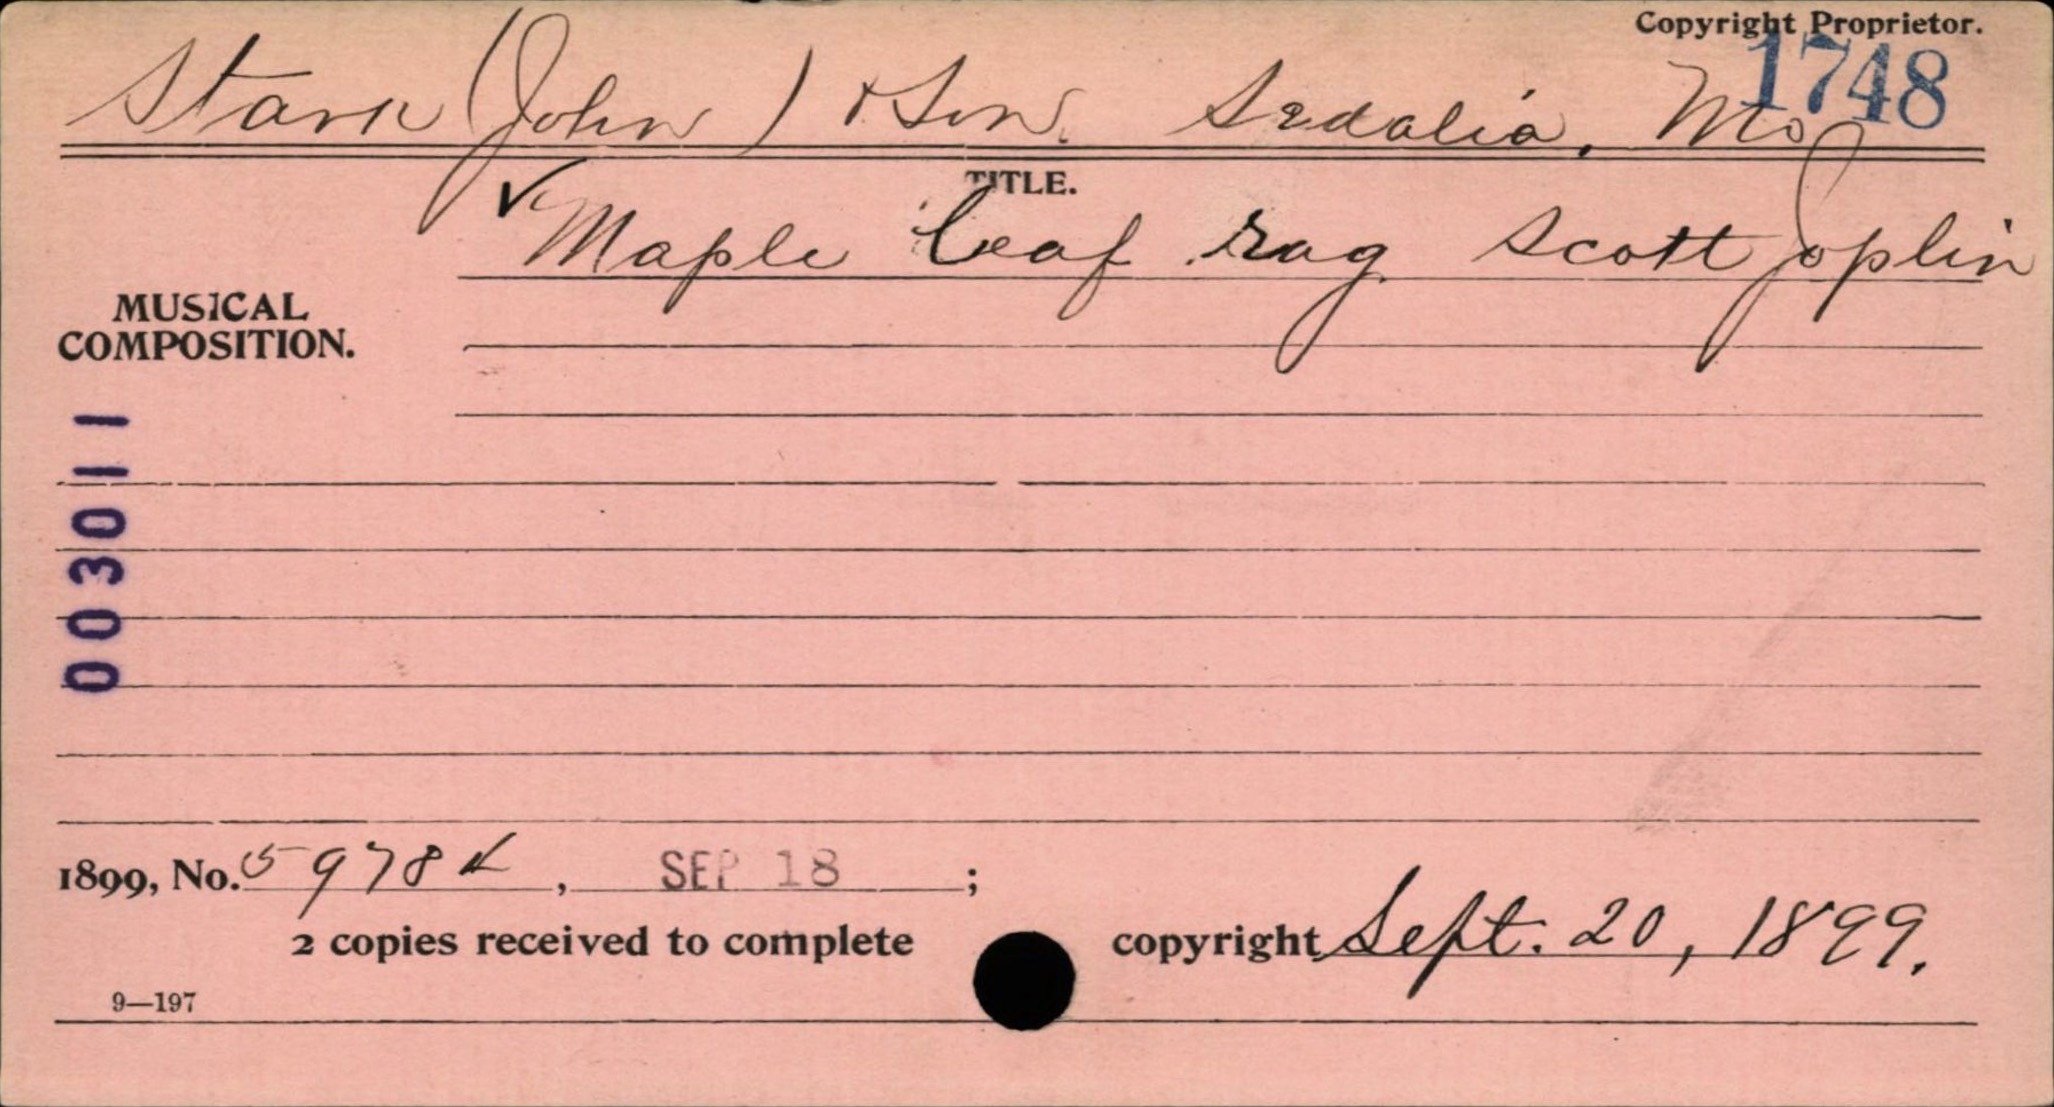 Copyright Proprietor.
1748
Stark (John) & Son. Sedalia, Mo
TITLE.
✓ Maple leaf rag Scott Joplin
MUSICAL
COMPOSITION.
003011
1899, No. 59784, SEP 18;
2 copies received to complete copyright Sept. 20, 1899.
9—197